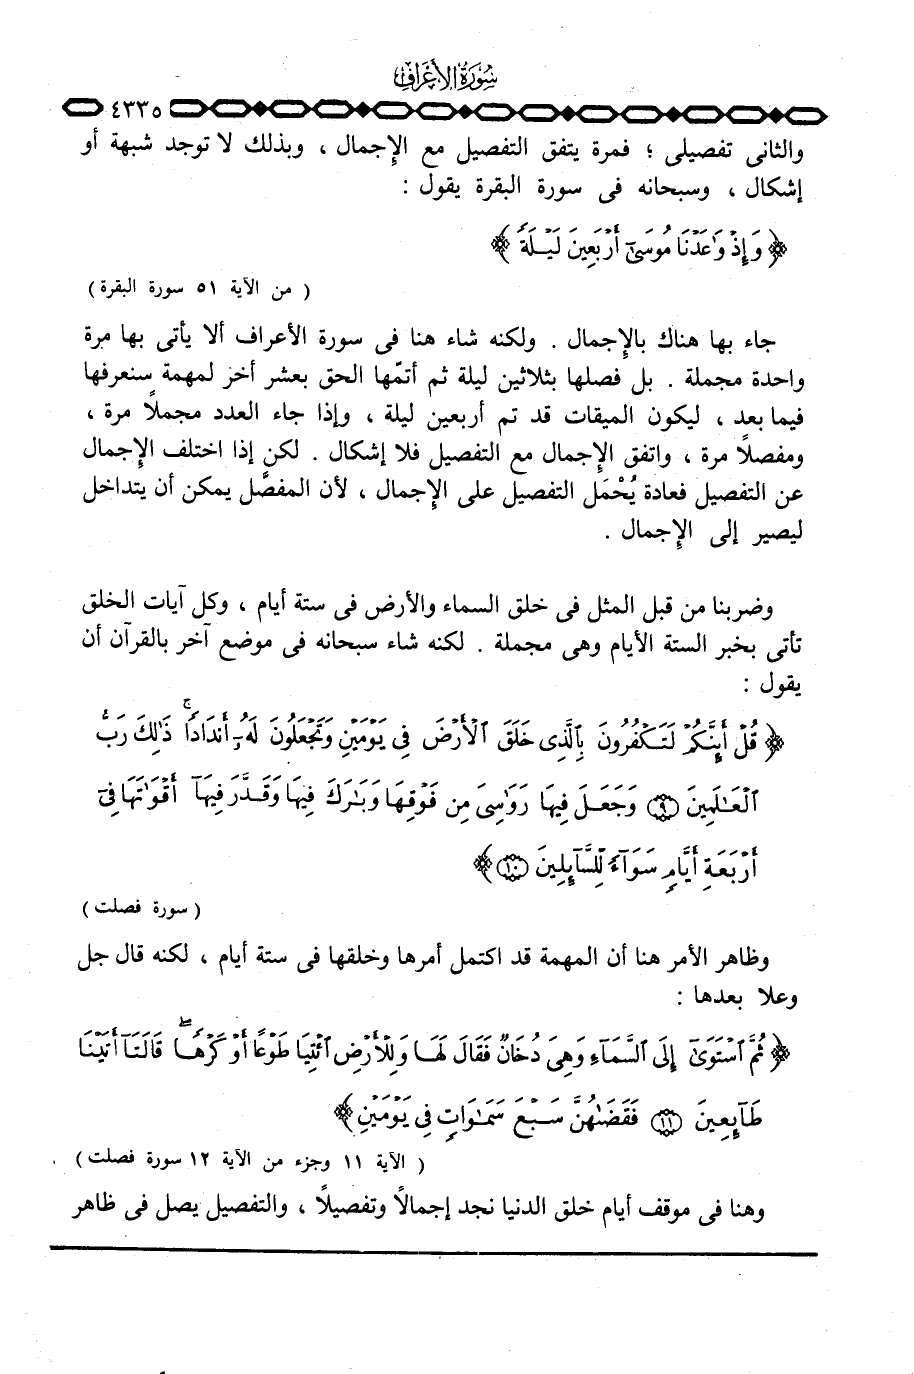 سُورَةُ الأَعْرَافِ
٤٣٣٥
والثانى تفصيلى ؛ فمرة يتفق التفصيل مع الإجمال ، وبذلك لا توجد شبهة أو
إشكال ، وسبحانه فى سورة البقرة يقول :
﴿ وَإِذْ وَٰعَدْنَا مُوسَىٰٓ أَرْبَعِينَ لَيْلَةً ﴾
( من الآية ٥١ سورة البقرة )
جاء بها هناك بالإجمال . ولكنه شاء هنا فى سورة الأعراف ألا يأتى بها مرة
واحدة مجملة . بل فصلها بثلاثين ليلة ثم أتمّها الحق بعشر أخر لمهمة سنعرفها
فيما بعد ، ليكون الميقات قد تم أربعين ليلة ، وإذا جاء العدد مجملاً مرة ،
ومفصلاً مرة ، واتفق الإجمال مع التفصيل فلا إشكال . لكن إذا اختلف الإجمال
عن التفصيل فعادة يُحْمَل التفصيل على الإجمال ، لأن المفصَّل يمكن أن يتداخل
ليصير إلى الإجمال .
وضربنا من قبل المثل فى خلق السماء والأرض فى ستة أيام ، وكل آيات الخلق
تأتى بخبر الستة الأيام وهى مجملة . لكنه شاء سبحانه فى موضع آخر بالقرآن أن
يقول :
﴿ قُلْ أَئِنَّكُمْ لَتَكْفُرُونَ بِٱلَّذِى خَلَقَ ٱلْأَرْضَ فِى يَوْمَيْنِ وَتَجْعَلُونَ لَهُۥٓ أَندَادًا ۚ ذَٰلِكَ رَبُّ
ٱلْعَـٰلَمِينَ ۝٩ وَجَعَلَ فِيهَا رَوَٰسِىَ مِن فَوْقِهَا وَبَـٰرَكَ فِيهَا وَقَدَّرَ فِيهَآ أَقْوَٰتَهَا فِىٓ
أَرْبَعَةِ أَيَّامٍ سَوَآءً لِّلسَّآئِلِينَ ۝١٠ ﴾
( سورة فصلت )
وظاهر الأمر هنا أن المهمة قد اكتمل أمرها وخلقها فى ستة أيام ، لكنه قال جل
وعلا بعدها :
﴿ ثُمَّ ٱسْتَوَىٰٓ إِلَى ٱلسَّمَآءِ وَهِىَ دُخَانٌ فَقَالَ لَهَا وَلِلْأَرْضِ ٱئْتِيَا طَوْعًا أَوْ كَرْهًا ۖ قَالَتَآ أَتَيْنَا
طَآئِعِينَ ۝١١ فَقَضَىٰهُنَّ سَبْعَ سَمَـٰوَاتٍ فِى يَوْمَيْنِ ﴾
( الآية ١١ وجزء من الآية ١٢ سورة فصلت )
وهنا فى موقف أيام خلق الدنيا نجد إجمالاً وتفصيلاً ، والتفصيل يصل فى ظاهر